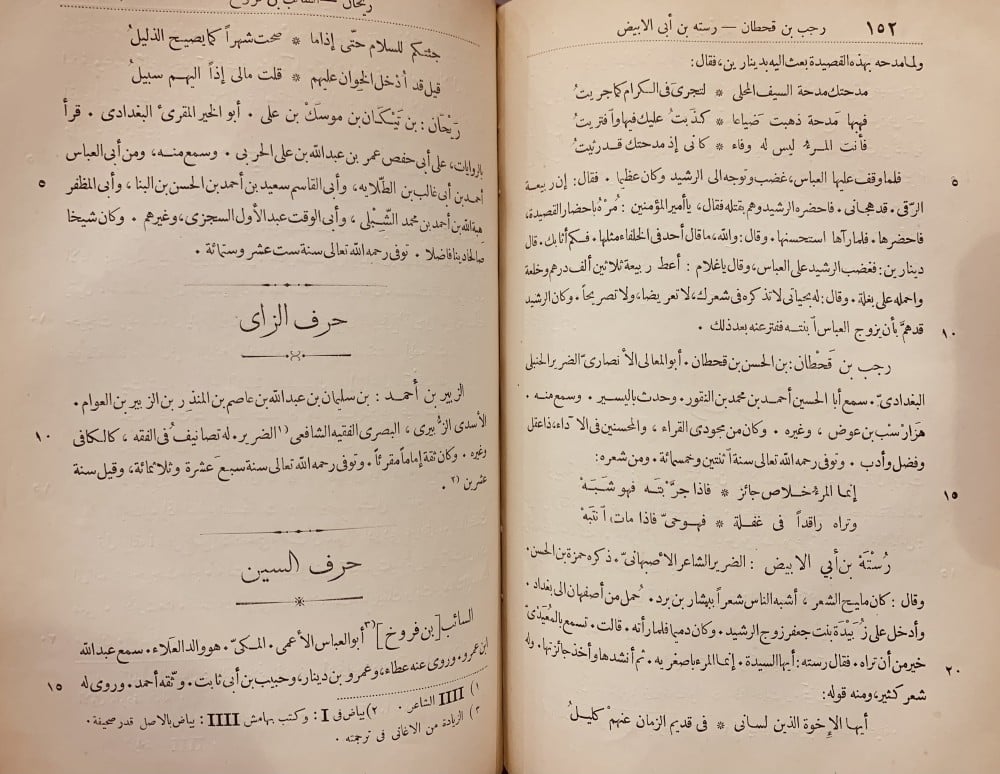 ١٥٢ رجب بن قحطان — رسته بن أبى الابيض
ولما مدحه بهذه القصيدة بعث اليه بدينارين، فقال:
مدحتك مدحة السيف المحلى * لتجرى فى الكرام كما جريتُ
فهبها مدحة ذهبت ضياعا * كذبتُ عليك فيها وافتريتُ
فأنت المرء ليس له وفاء * كأنى إذ مدحتك قد رثيتُ
فلما وقف عليها العباس، غضب وتوجه الى الرشيد وكان عظيما. فقال: إن ربيعة ٥
الرّقى. قد هجانى. فاحضره الرشيد وهم بقتله فقال، يا أمير المؤمنين: مُرْهُ باحضار القصيدة،
فاحضرها. فلما رآها استحسنها. وقال: والله، ما قال أحد فى الخلفاء مثلها. فكم أثابك. قال
دينارين: فغضب الرشيد على العباس، وقال يا غلام: أعط ربيعة ثلاثين ألف درهم وخلعة
واحمله على بغلة. وقال: له بحياتى لا تذكره فى شعرك، لا تعريضا، ولا تصريحاً. وكان الرشيد
قد همَّ بأن يزوج العباس ابنته ففتر عنه بعد ذلك. ١٠
رجب بن قَحْطان: بن الحسن بن قحطان. أبو المعالى الأنصارىّ الضرير الحنبلى
البغدادىّ. سمع أبا الحسين أحمد بن محمد بن النقور. وحدث باليسير. وسمع منه.
هَزَارسْب بن عوض، وغيره. وكان من مجودى القراء، والمحسنين فى الآداء، ذا عقل
وفضل وأدب. وتوفى رحمه الله تعالى سنة اثنتين وخمسمائة. ومن شعره:
إنما المرء خلاص جائز * فاذا جرَّبتَه فهو شَبَهْ ١٥
وتراه راقداً فى غفلة * فهو حىّ فاذا مات انتبَهْ
رُسْتَهْ بن أبي الابيض: الضرير الشاعر الأصبهانىّ. ذكره حمزة بن الحسن.
وقال: كان مليح الشعر، أشبه الناس شعراً ببشار بن برد. حُمل من أصفهان الى بغداد.
وأدخل على زُبَيْدة بنت جعفر زوج الرشيد. وكان دميما فلما رأته. قالت. تسمع بالمُعَيْدىّ
خير من أن تراه. فقال رسته: أيها السيدة. إنما المرء باصغريه. ثم أنشدها وأخذ جائزتها. وله ٢٠
شعر كثير، ومنه قوله:
أيها الإخوة الذين لسانى * فى قديم الزمان عنهمْ كليلُ
جئتكم للسلام حتّى إذا ما * صحت شهراً كما يصيح الذليلُ
قيل قد أدْخل الخِوان عليهم * قلت مالى إذاً اليهم سبيلُ
رَيْحان: بن تيكان بن موسك بن على. أبو الخير المقرئ البغدادى. قرأ
بالروايات، على أبى حفص عمر بن عبدالله بن على الحربى. وسمع منه، ومن أبى العباس
أحمد بن أبى غالب بن الطّلّايه، وأبى القاسم سعيد بن أحمد بن الحسن بن البنا، وأبى المظفر ٥
هبة الله بن أحمد بن محمد الشّبلى، وأبى الوقت عبد الأول السجزى، وغيرهم. وكان شيخا
صالحا دينا فاضلا. توفى رحمه الله تعالى سنة ست عشر وستمائة.
حرف الزاى
الزبير بن أحمد: بن سليمان بن عبدالله بن عاصم بن المنذر بن الزبير بن العوام.
الأسدى الزُّبيرى، البصرى الفقيه الشافعى ١) الضرير. له تصانيفُ فى الفقه، كالكافى ١٠
وغيره. وكان ثقة إماماً مقرئاً. وتوفى رحمه الله تعالى سنة سبعَ عشرة وثلاثمائة، وقيل سنة
عشرين ٢).
حرف السين
السائب [بن فروخ] ٣) أبو العباس الأعمى. المكىّ. هو والد العلاء. سمع عبدالله
ابن عمرو. وروى عنه عطاء، وعمرو بن دينار، وحبيب بن أبى ثابت. وثّقه أحمد. وروى له ١٥
١) IIII الشاعر. ٢) بياض فى I: وكتب بهامش IIII: بياض بالأصل قدر صحيفة.
٣) الزيادة من الاغانى فى ترجمته.